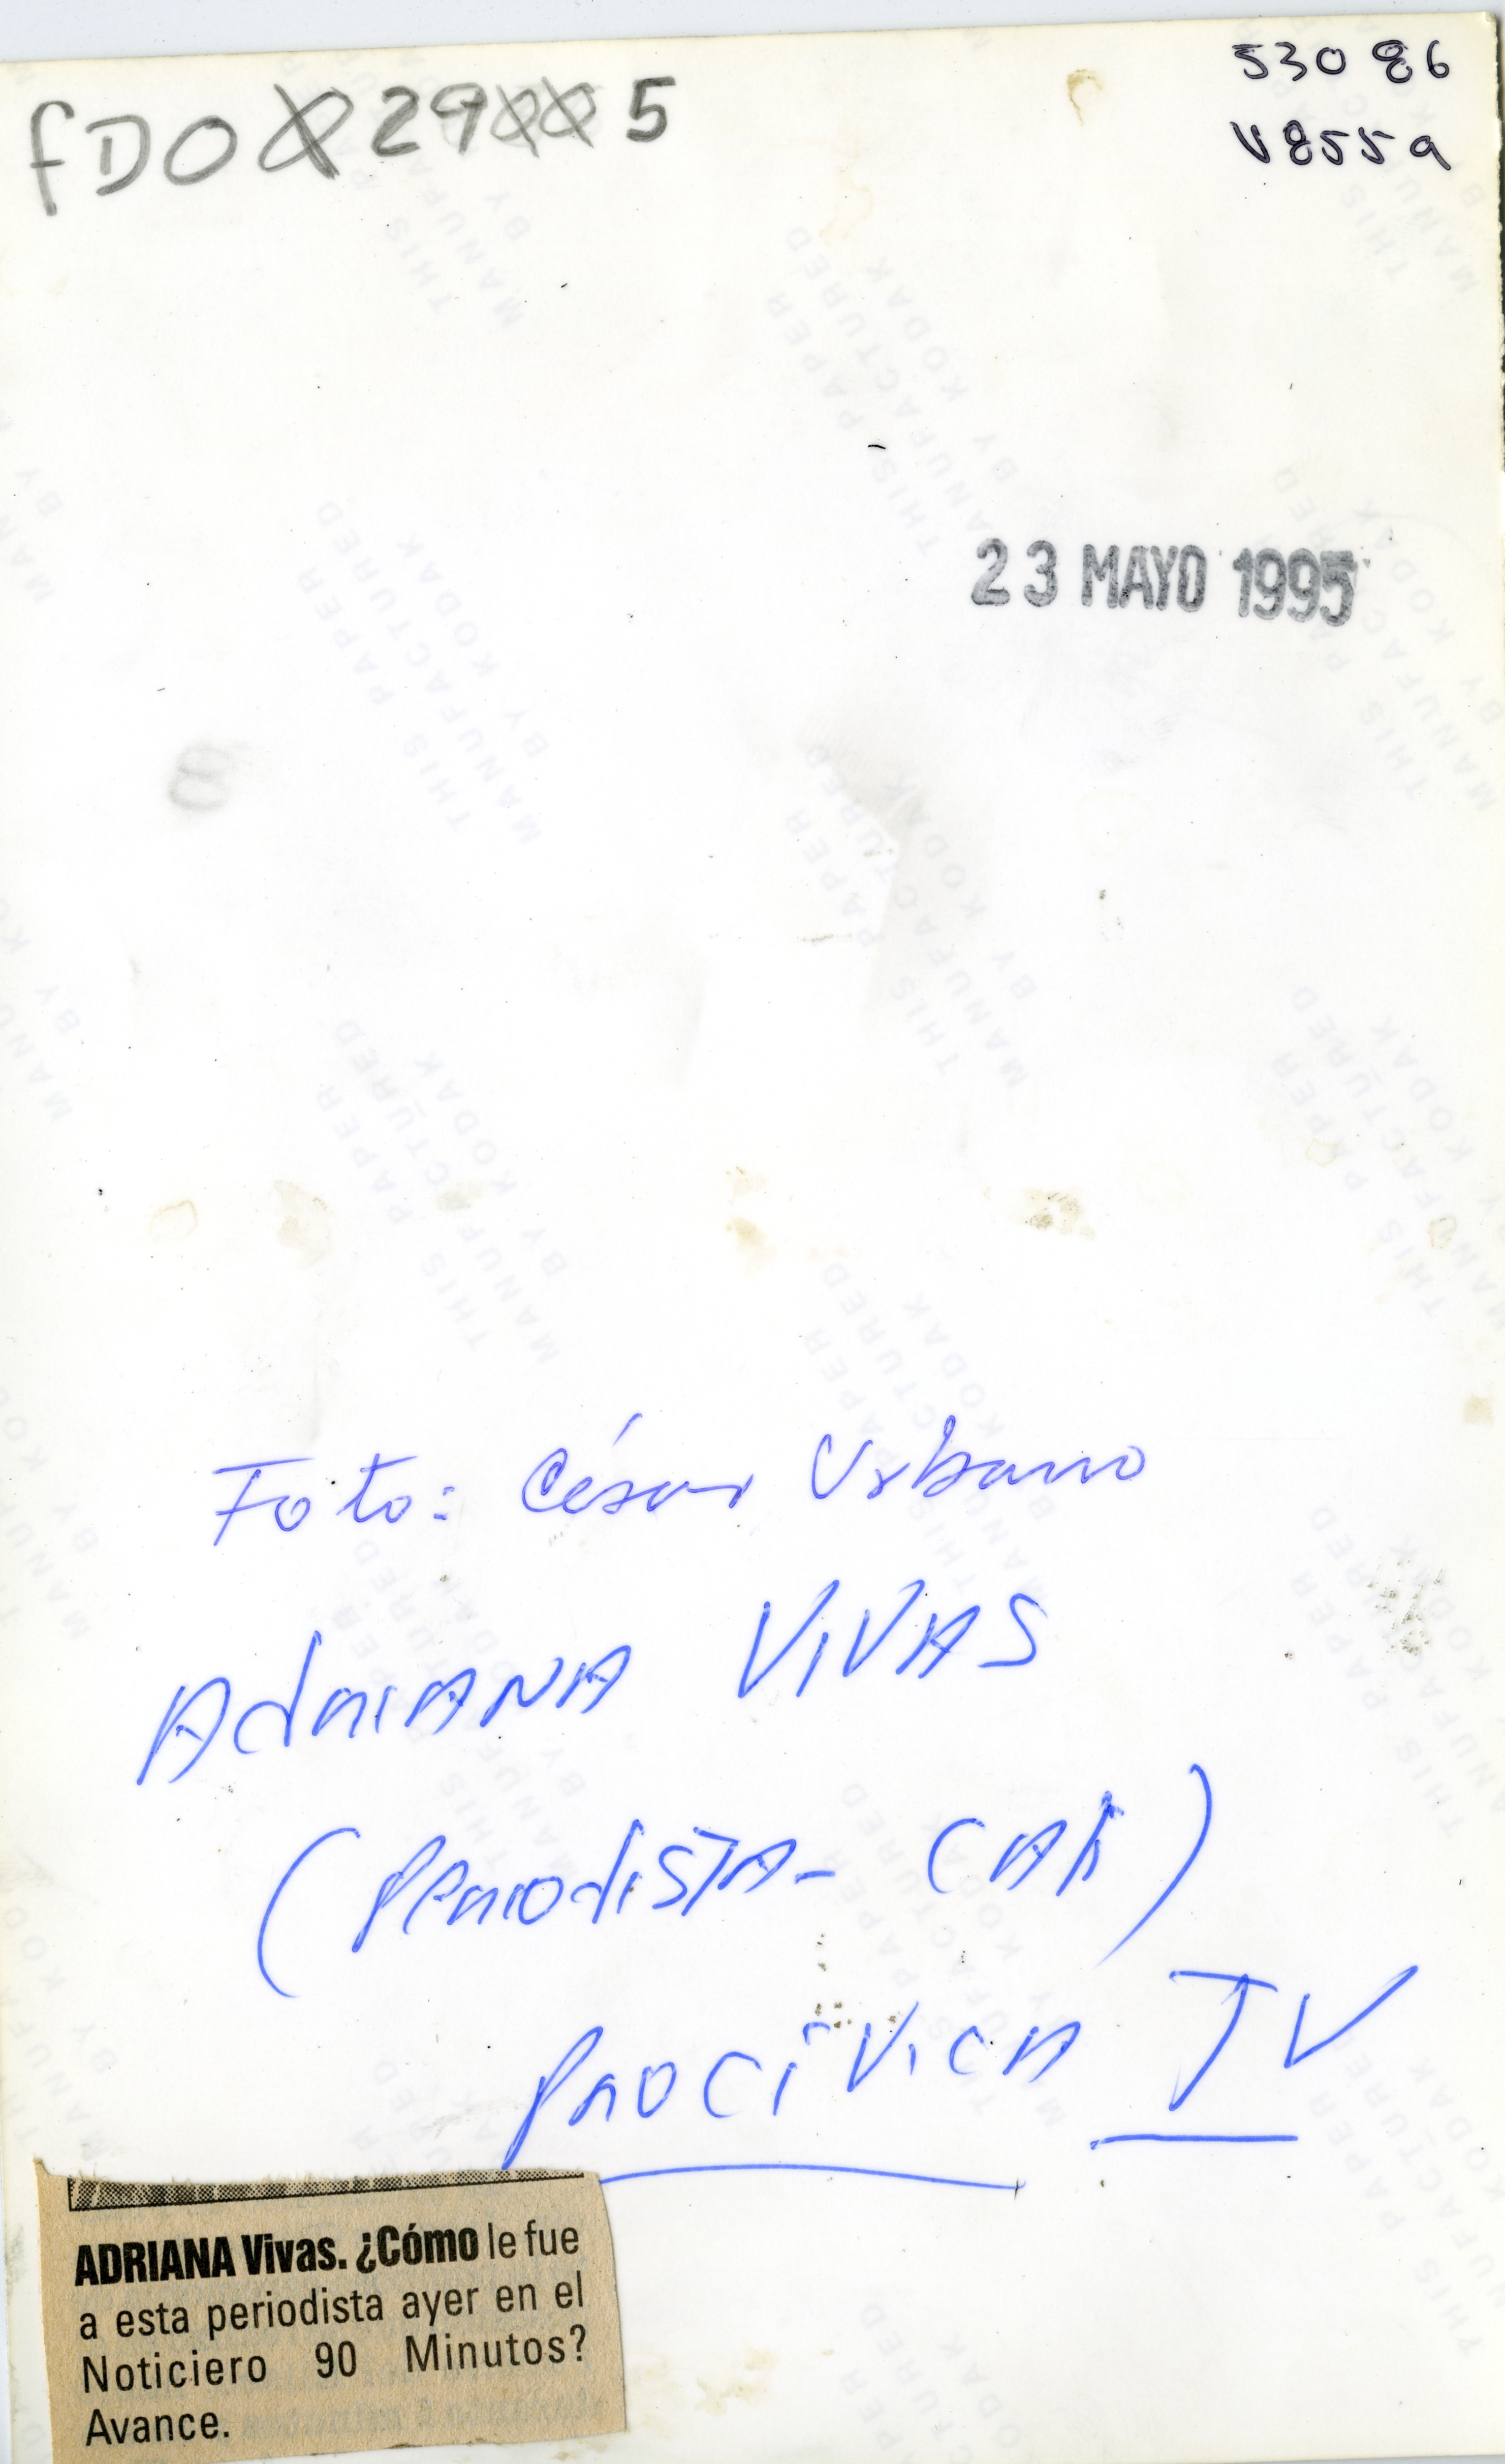 fD0029005
53086
V855a
23 MAYO 1995
8
Foto: César Urbano
AdRIANA VIVAS
(PERIodiSTA- CAR)
PROCÍVICA TV
ADRIANA Vivas. ¿Cómo le fue
a esta periodista ayer en el
Noticiero 90 Minutos?
Avance.
THIS PAPER
MANUFACTURED
BY KODAK